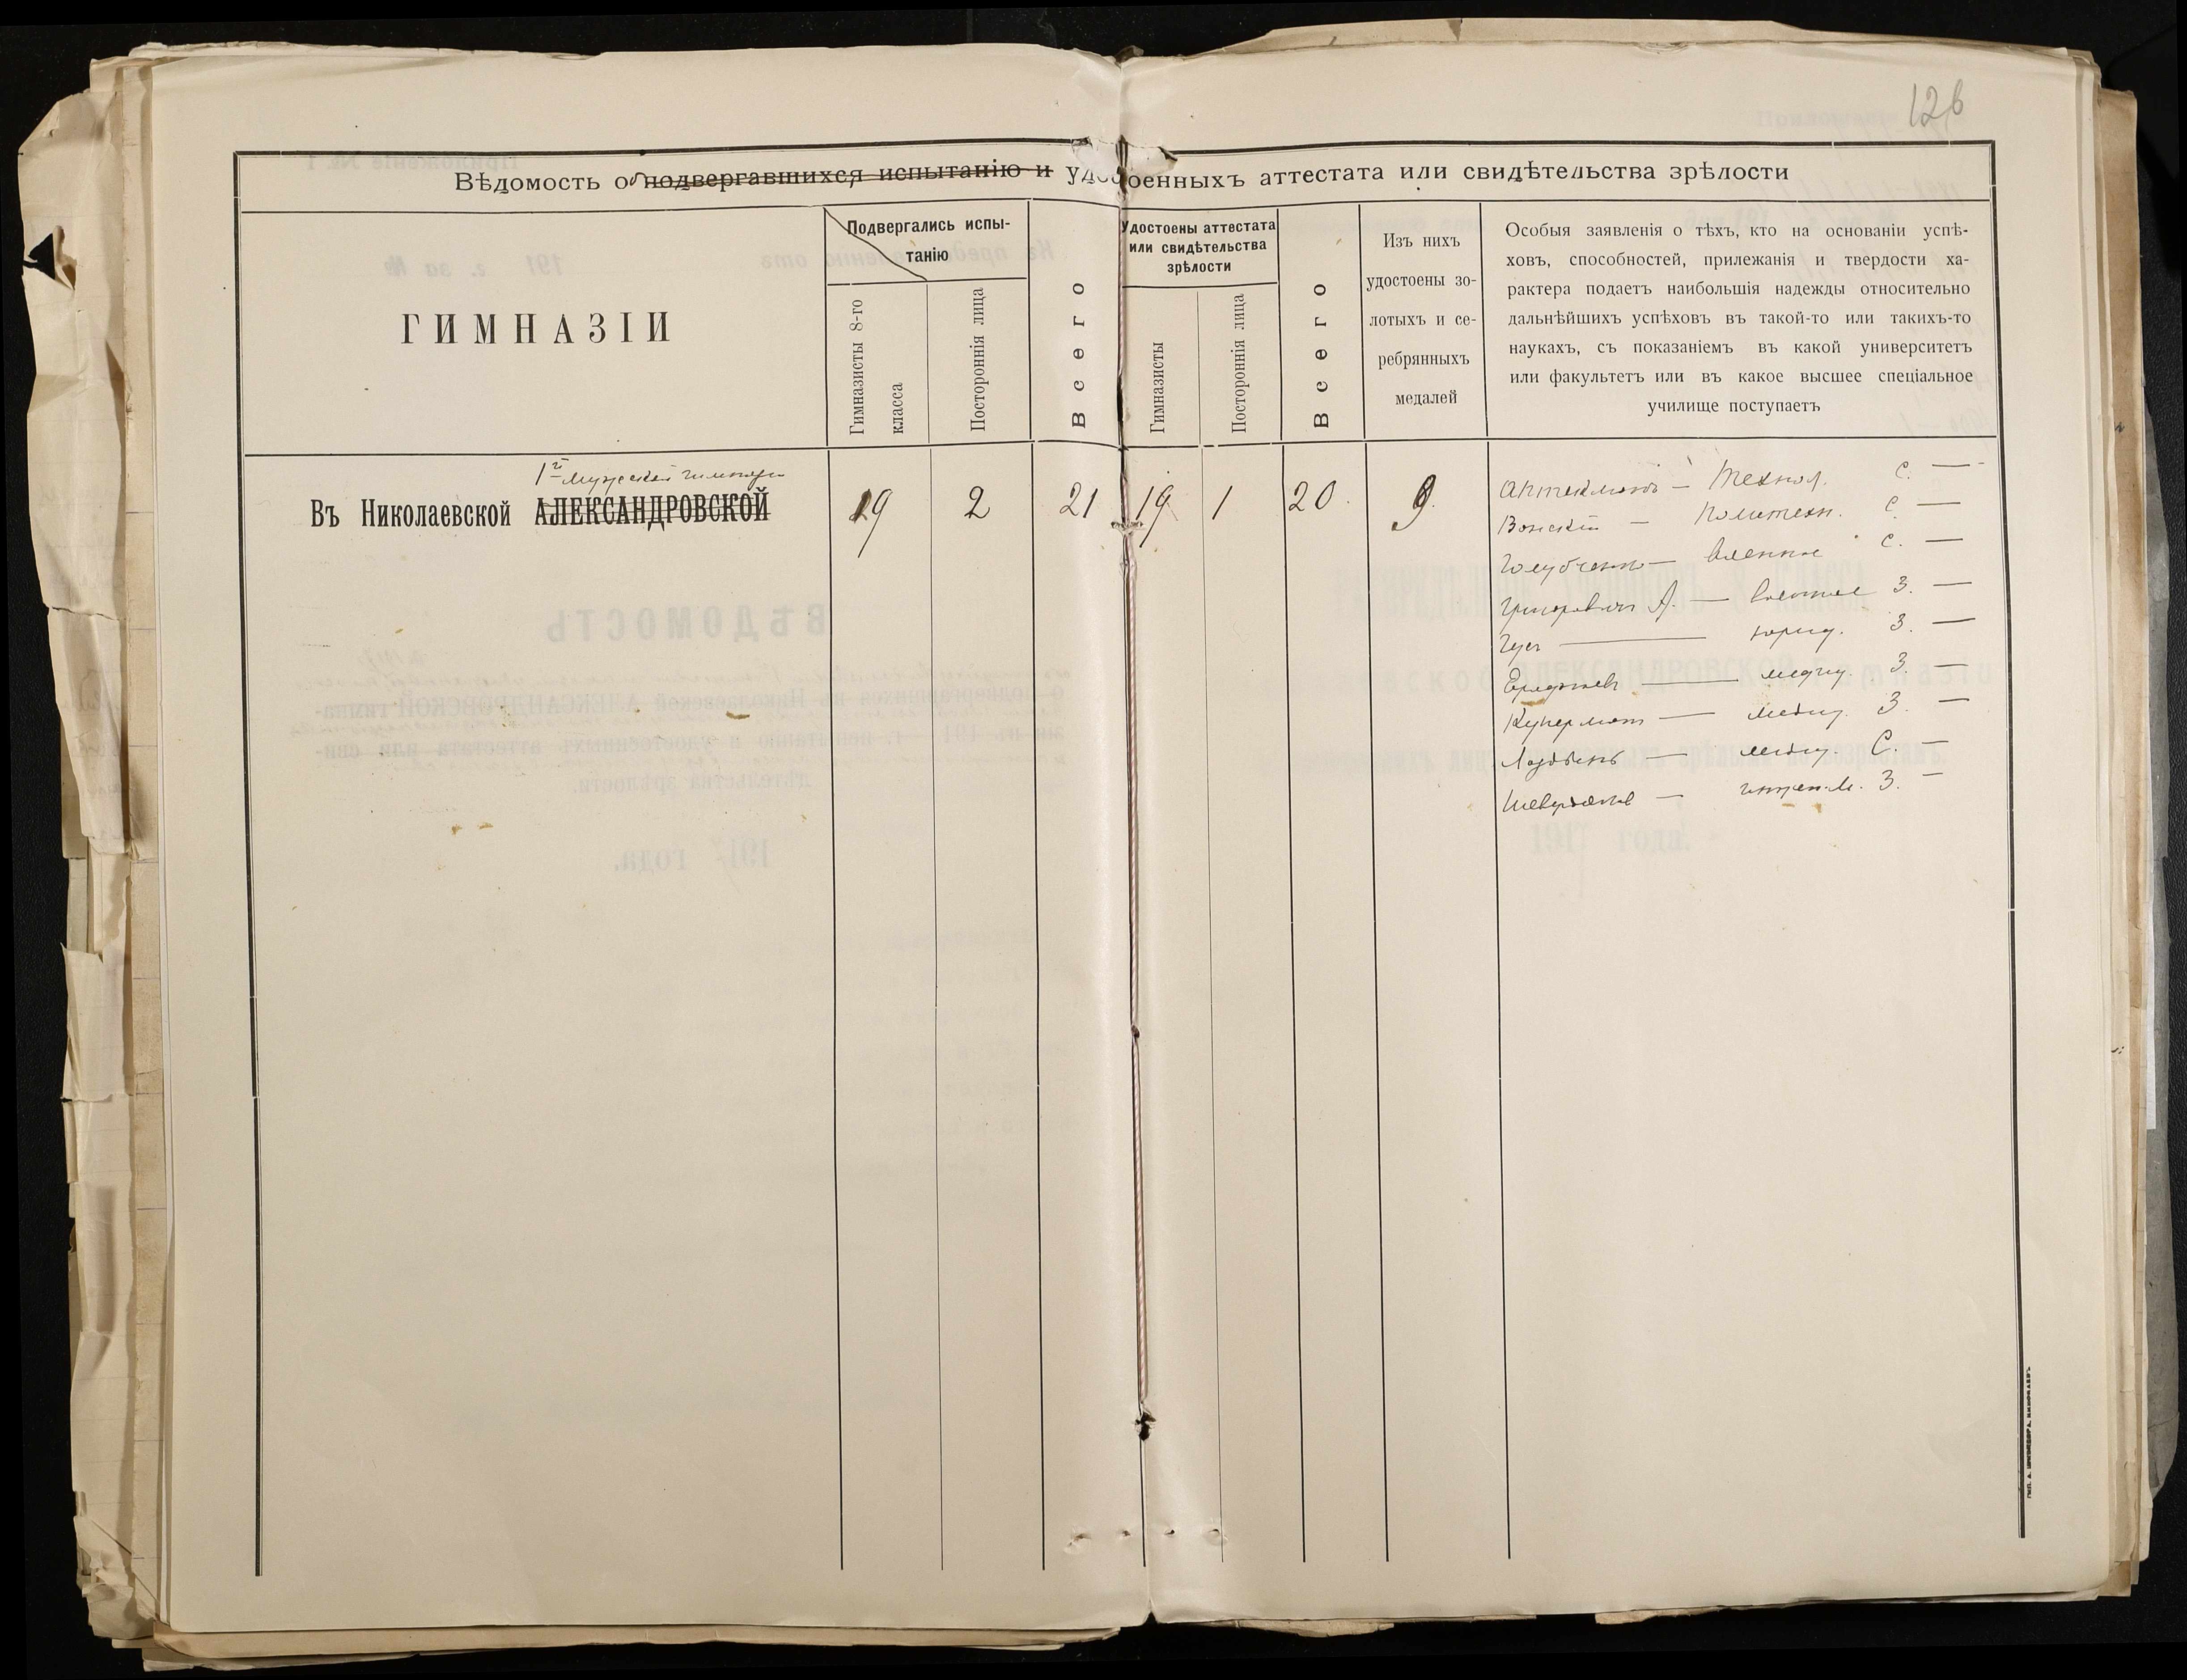 126
Вѣдомость о подвергавшихся испытанію и удостоенныхъ аттестата или свидѣтельства зрѣлости
ГИМНАЗІИ
Подвергались испы-
танію
Гимназисты 8-го
класса
Постороннія лица
Всего
Удостоены аттестата
или свидѣтельства
зрѣлости
Гимназисты
Постороннія лица
Всего
Изъ нихъ
удостоены зо-
лотыхъ и се-
ребрянныхъ
медалей
Особыя заявленія о тѣхъ, кто на основаніи успѣ-
ховъ, способностей, прилежанія и твердости ха-
рактера подаетъ наибольшія надежды относительно
дальнѣйшихъ успѣховъ въ такой-то или такихъ-то
наукахъ, съ показаніемъ въ какой университетъ
или факультетъ или въ какое высшее спеціальное
училище поступаетъ
1й мужской гимназіи
Въ Николаевской АЛЕКСАНДРОВСКОЙ
19 2 21 19 1 20. 9.
Аптекманъ — Технол. С. —
Вонскій — Политехн. С —
Голубченко — военное С. —
Григоровичъ А. — военное З. —
Гусъ — юрид. З. —
— медиц. З. —
Куперманъ — медиц. З. —
— медиц. С. —
— З. —